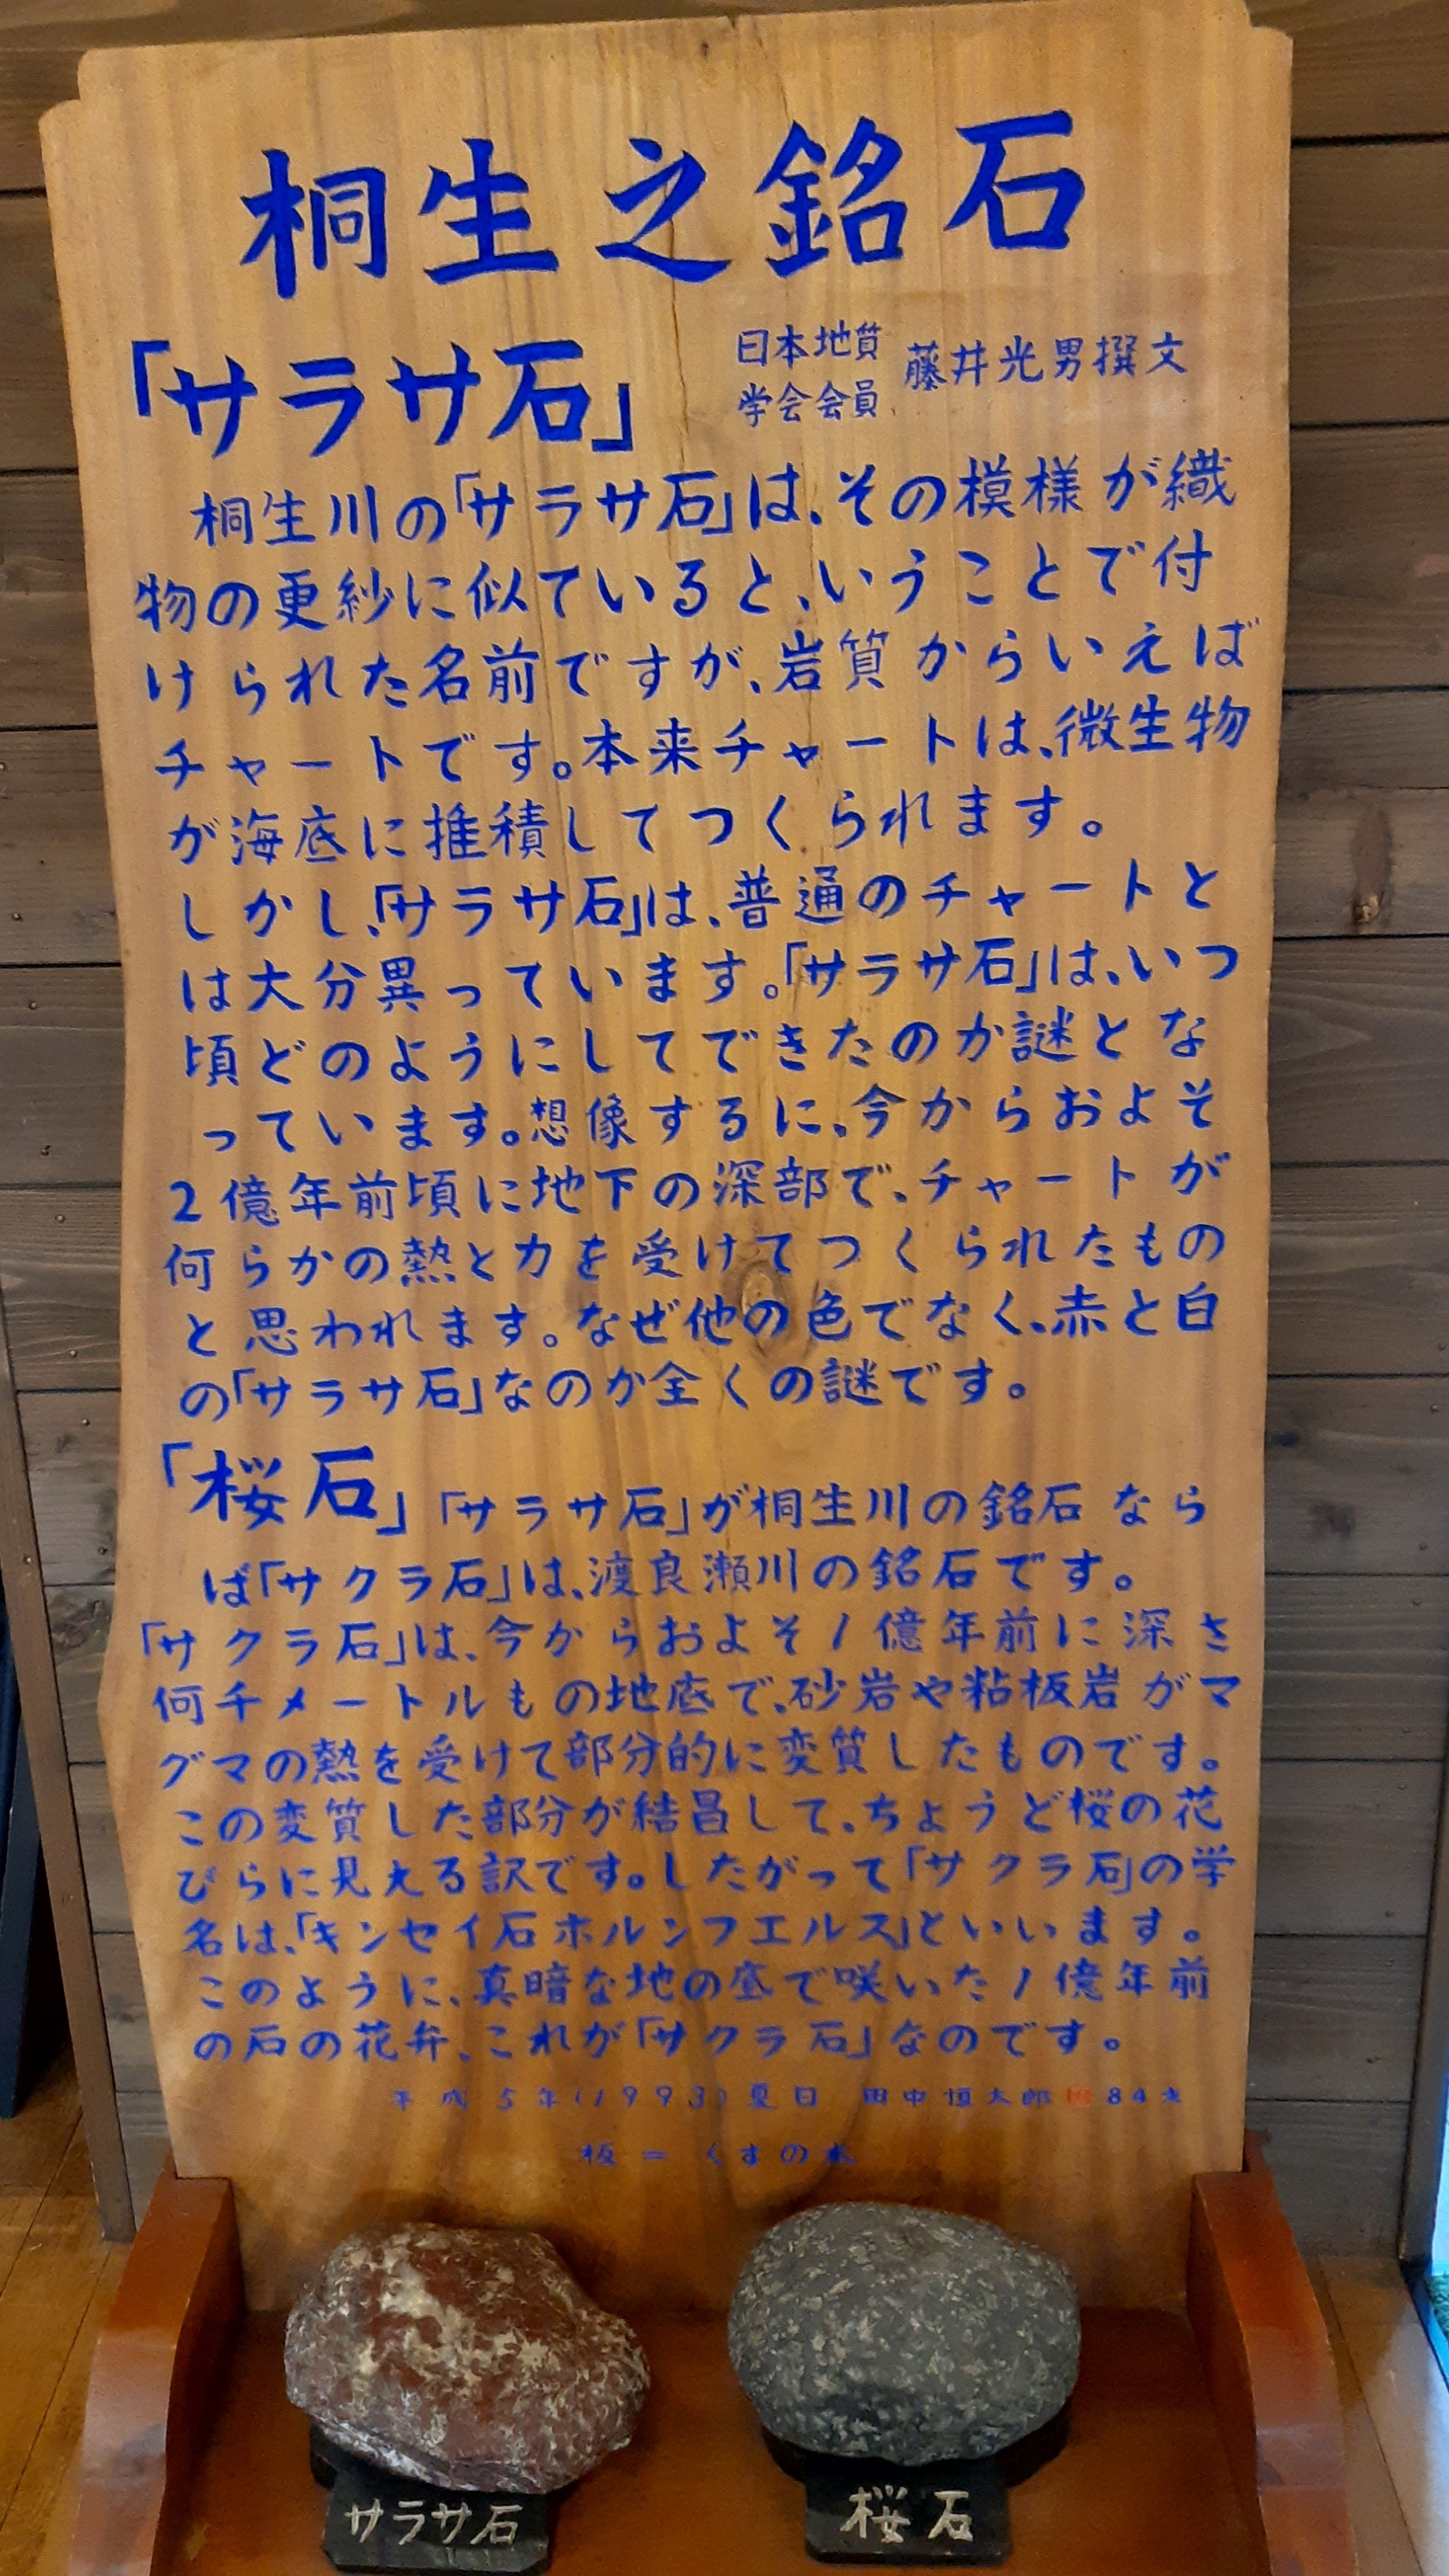 桐生之銘石
「サラサ石」
日本地質
学会会員
藤井光男撰文
桐生川の「サラサ石」は、その模様が織
物の更紗に似ていると、いうことで付
けられた名前ですが、岩質からいえば
チャートです。本来チャートは、微生物
が海底に推積してつくられます。
しかし、「サラサ石」は、普通のチャートと
は大分異っています。「サラサ石」は、いつ
頃どのようにしてできたのか謎とな
っています。想像するに、今からおよそ
2億年前頃に地下の深部で、チャートが
何らかの熱と力を受けてつくられたもの
と思われます。なぜ他の色でなく、赤と白
の「サラサ石」なのか全くの謎です。
「桜石」「サラサ石」が桐生川の銘石なら
ば「サクラ石」は、渡良瀬川の銘石です。
「サクラ石」は、今からおよそ1億年前に深さ
何千メートルもの地底で、砂岩や粘板岩がマ
グマの熱を受けて部分的に変質したものです。
この変質した部分が結晶して、ちょうど桜の花
びらに見える訳です。したがって「サクラ石」の学
名は、「キンセイ石ホルンフエルス」といいます。
このように、真暗な地の底で咲いた1億年前
の石の花弁、これが「サクラ石」なのです。
平成5年(1993)夏日 田中恒太郎 84才
板=くすの木
サラサ石
桜石